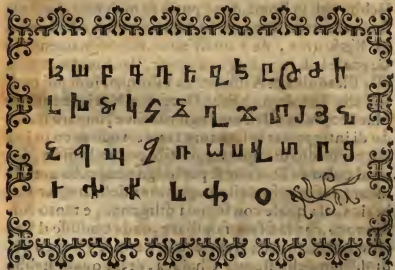 ա բ գ դ ե զ է ը թ ժ ի
լ խ ծ կ հ ձ ղ ճ մ յ ն
շ չ պ ջ ռ ս վ տ ր ց
ւ փ ք և ֆ օ